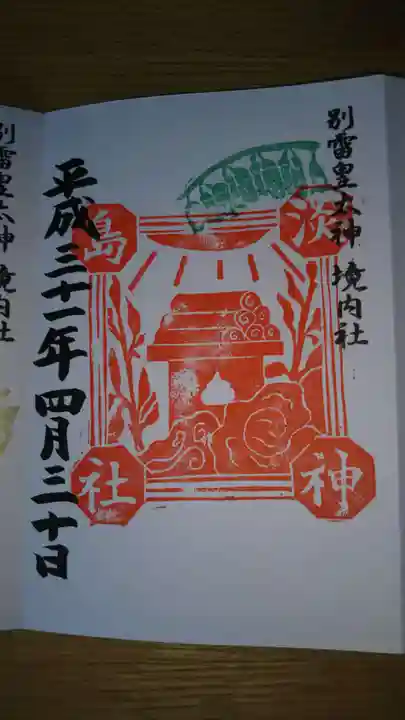 別雷皇太神 境内社
茨島神社
平成三十一年四月三十日
別雷皇太神 境内社